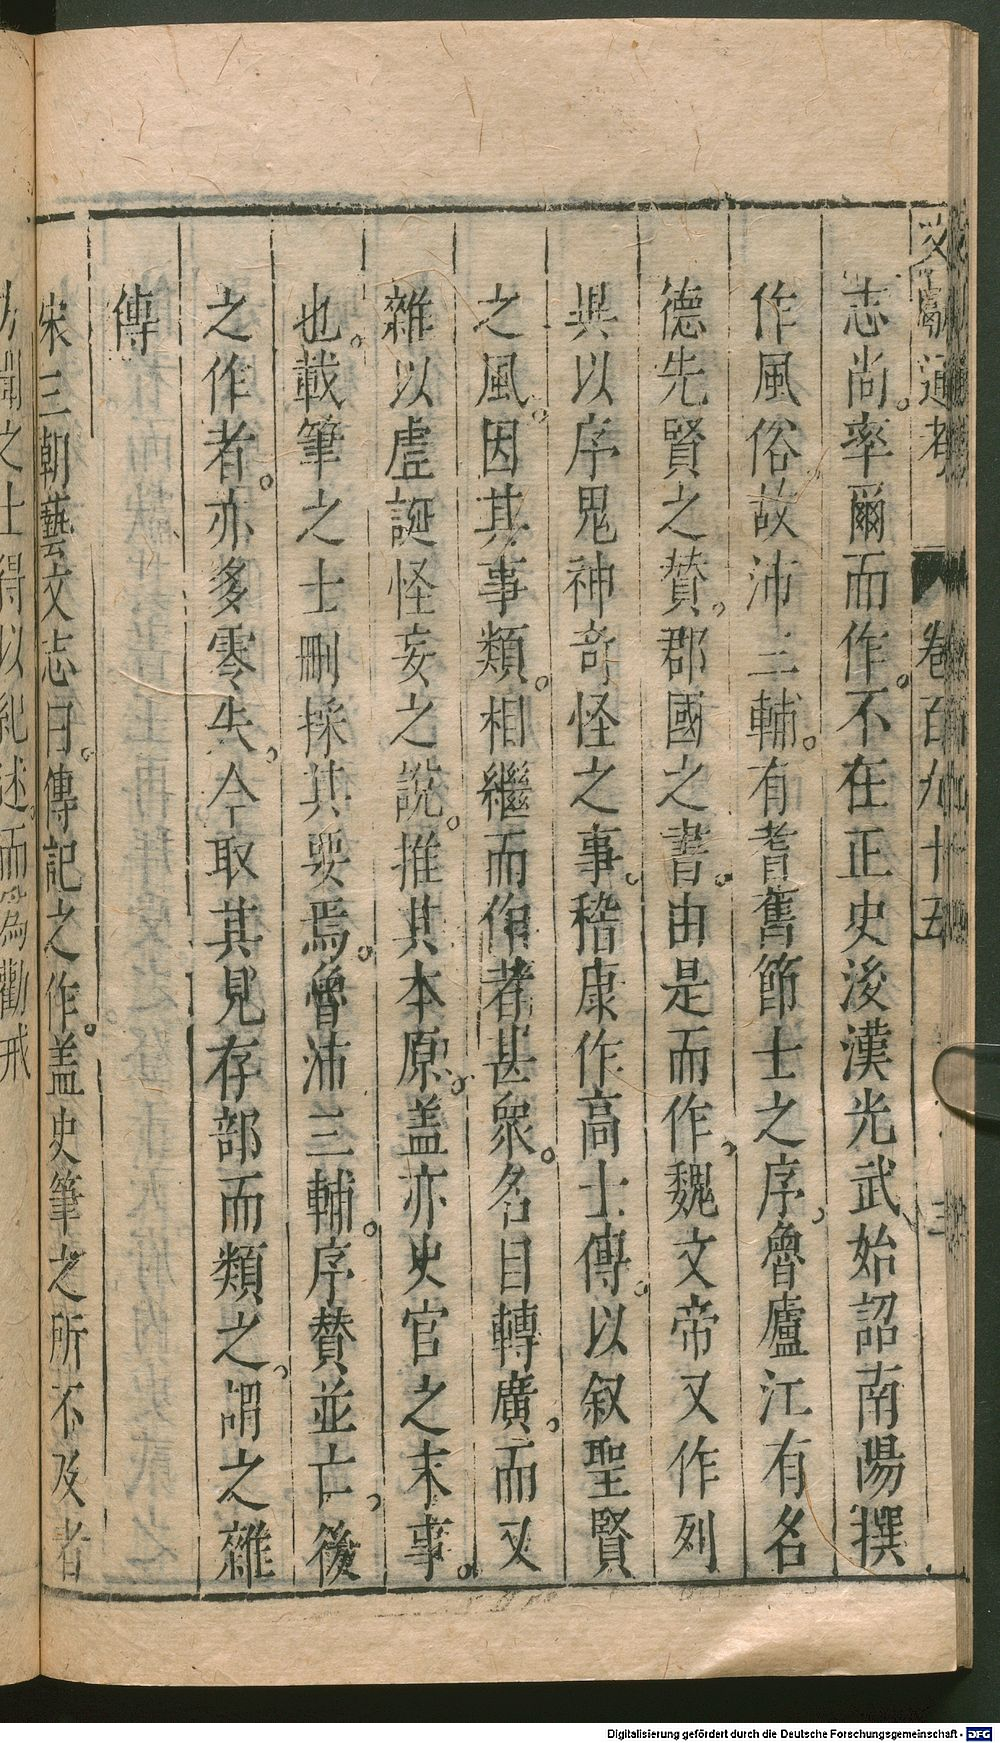 文獻通考 卷百九十五 三
志尚。率爾而作。不在正史後漢光武始詔南陽撰
作風俗故沛三輔。有耆舊節士之序。魯廬江有名
德先賢之贊。郡國之書。由是而作。魏文帝又作列
異以序鬼神奇怪之事。稽康作高士傳。以叙聖賢
之風。因其事類。相繼而作者甚衆。名目轉廣。而又
雜以虛誕怪妄之說。推其本原。盖亦史官之末事。
也。載筆之士刪採其要焉。魯沛三輔。序贊並亡。後
之作者。亦多零失。今取其見存部而類之。謂之雜
傳
宋三朝藝文志曰。傳記之作。盖史筆之所不及者
方聞之士得以紀述。而為勸戒
Digitalisierung gefördert durch die Deutsche Forschungsgemeinschaft - DFG